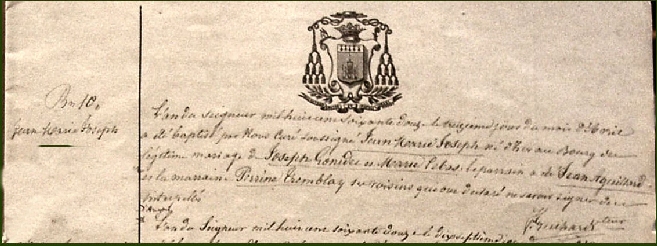 Bm 10.
Jean Marie Joseph
L'an du seigneur mil huit cent soixante douze le treizieme jour du mois d'Avril
a été baptisé par Nous Curé soussigné Jean Marie Joseph né d'hier au Bourg du
légitime mariage de Joseph Gonidec et Marie le parrain a été Jean
et la marraine Perrine Tremblay qui ont déclaré ne savoir signer de ce
interpellé
recteur
L'an du Seigneur mil huit cent soixante douze le dix septième